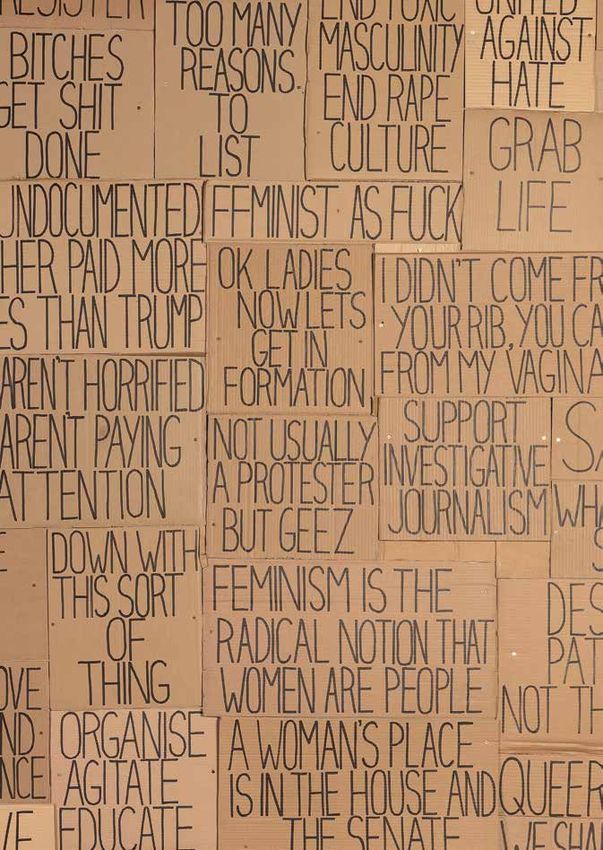 RESISTER
BITCHES
GET SHIT
DONE
TOO MANY
REASONS
TO
LIST
END TOXIC
MASCULINITY
END RAPE
CULTURE
UNITED
AGAINST
HATE
GRAB
LIFE
UNDOCUMENTED
HER PAID MORE
ES THAN TRUMP
FEMINIST AS FUCK
OK LADIES
NOW LETS
GET IN
FORMATION
I DIDN'T COME FR
YOUR RIB, YOU CA
FROM MY VAGINA
AREN'T HORRIFIED
AREN'T PAYING
ATTENTION
NOT USUALLY
A PROTESTER
BUT GEEZ
SUPPORT
INVESTIGATIVE
JOURNALISM
SA
WHA
S
E
DOWN WITH
THIS SORT
OF
THING
FEMINISM IS THE
RADICAL NOTION THAT
WOMEN ARE PEOPLE
DES
PAT
NOT TH
OVE
ND
NCE
VE
ORGANISE
AGITATE
EDUCATE
A WOMAN'S PLACE
IS IN THE HOUSE AND
THE SENATE
QUEER
WE SHA